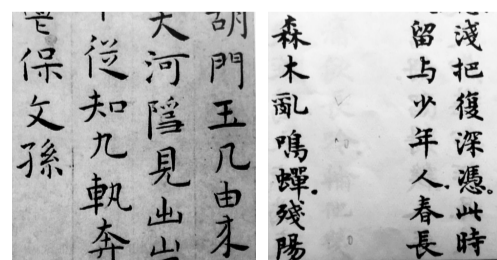 胡門王几由来
河隱見出
從知九軌奔
保文孫
淺把復深憑.此時
留与少年人.春長
森木亂鳴蟬.殘陽